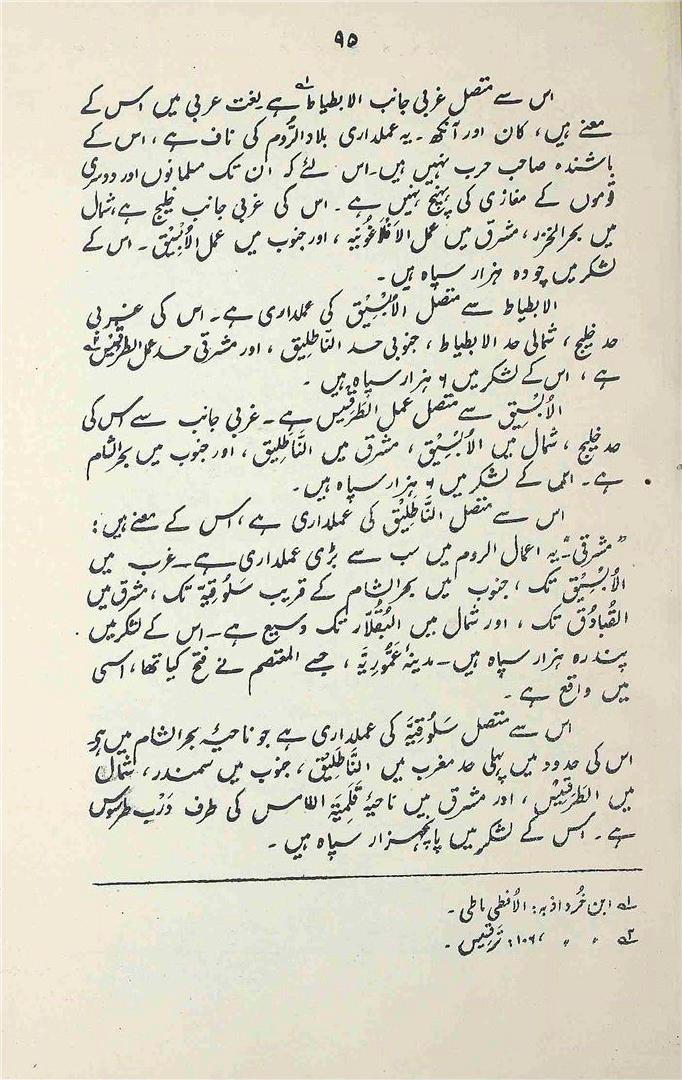 ۹۵
اس سے متصل غربی جانب الابطیاط ۱؎ ہے لغت عربی میں اس کے
معنے ہیں، کان اور آنکھ۔ یہ عملداری بلاد الرُّوم کی ناف ہے، اس کے
باشندہ صاحب حرب نہیں ہیں۔ اس لئے کہ ان تک مسلمانوں اور دوسری
قوموں کے مغازی کی پہنچ نہیں ہے۔ اس کی غربی جانب خلیج ہے، شمال
میں بحر الخزر، مشرق میں عمل الافلاغونیہ، اور جنوب میں عمل الاُبْسِیْق۔ اس کے
لشکر میں چودہ ہزار سپاہ ہیں۔
الابطیاط سے متصل الاُبْسِیْق کی عملداری ہے۔ اس کی غربی
حد خلیج، شمالی حد الابطیاط، جنوبی حد النّاطلیق، اور مشرقی حد عمل الطرقیس ۲؎
ہے، اس کے لشکر میں ۶ ہزار سپاہ ہیں۔
الاُبْسِیْق سے متصل عمل الطَرقیس ہے۔ غربی جانب سے اس کی
حد خلیج، شمال میں الاُبْسِیْق، مشرق میں النَّاطلِیق، اور جنوب میں بحر الشام
ہے۔ اس کے لشکر میں ۶ ہزار سپاہ ہیں۔
اس سے متصل النَّاطلِیْق کی عملداری ہے، اس کے معنے ہیں:
”مشرقی“۔ یہ اعمال الروم میں سب سے بڑی عملداری ہے۔ غرب میں
الاُبْسِیْق تک، جنوب میں بحر الشام کے قریب سَلُوقیَّۃ تک، مشرق میں
القُبَادُق تک، اور شمال میں البُقُلّار تک وسیع ہے۔ اس کے لشکر میں
پندرہ ہزار سپاہ ہیں۔ مدینۂ عَمُّورِیَّہ، جسے المعتصم نے فتح کیا تھا، اسی
میں واقع ہے۔
اس سے متصل سَلُوقیَّۃ کی عملداری ہے جو ناحیۂ بحر الشام میں ہے۔
اس کی حدود میں پہلی حد مغرب میں النَّاطلِیْق، جنوب میں سمندر، شمال
میں الطَرقیس، اور مشرق میں ناحیۂ قَلَمِیَّۃ اللامس کی طرف دَرْبِ طرسوس
ہے۔ اس کے لشکر میں پانچہزار سپاہ ہیں۔
۱؎ ابن خُرداذبہ: الاُفطی ماطی۔
۲؎ ” ” ،۱۰۶: تَرَقِیس۔